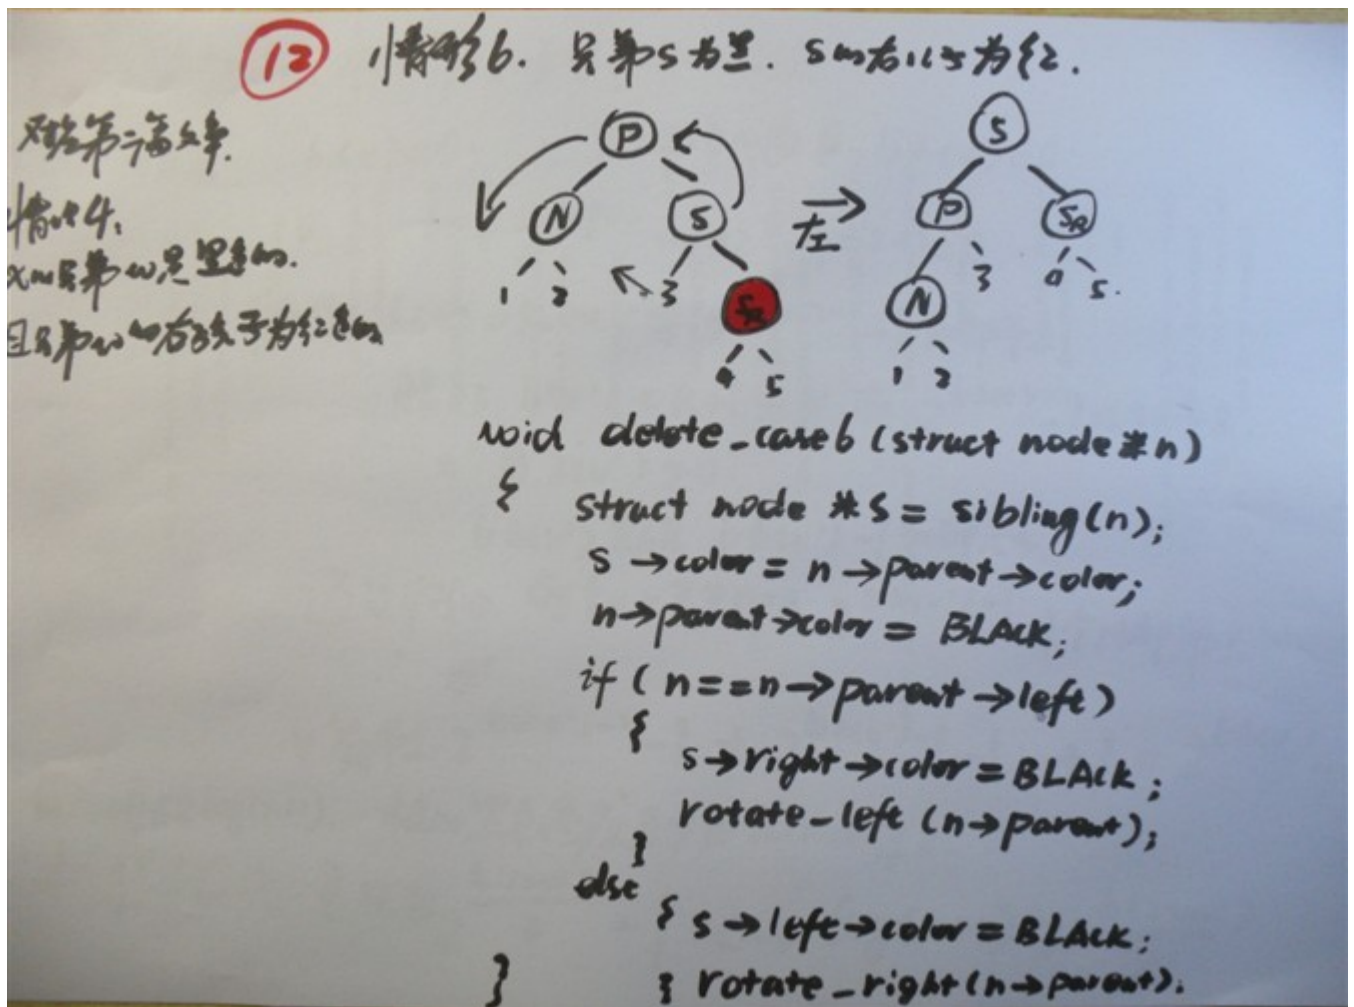 12 情形6. 兄弟S为黑. S的右儿子为红.
对应第二篇文章.
情况4:
x的兄弟w是黑色的.
且兄弟w的右孩子为红色的
P
N
S
1
2
3
SR
4
5
左
S
P
SR
N
3
4
5.
1
2
void delete_case6 (struct node *n)
{
struct node *S = sibling(n);
S →color = n →parent→color;
n→parent→color = BLACK;
if ( n==n→parent →left)
{
s→right→color = BLACK;
rotate_left (n→parent);
}
else
{ s→left→color = BLACK;
} } rotate_right(n→parent).